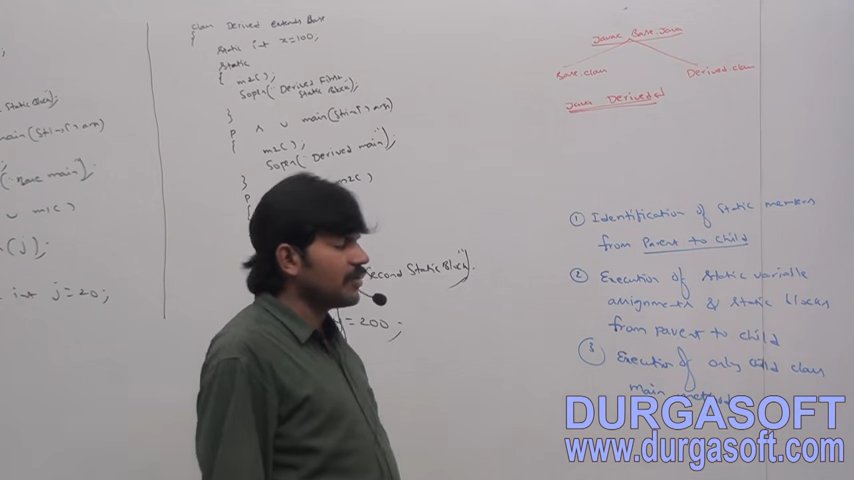 Static Block");
main(String[] args)
("Base main");
∪ m1( )
n(j);
int j=20;
class Derived extends Base
{
Static int x=100;
Static
{ m2( );
Sopln("Derived First
Static Block");
}
P ∧ ∪ main(String[] args)
{
m2( );
Sopln("Derived main");
}
P
m2( )
{
Second Static Block");
y=200;
Javac Base.Java
Base.class
Derived.class
Java Derived
① Identification of Static members
from Parent to Child
② Execution of static variable
assignments & static blocks
from parent to child
③ Execution of only child class
main method
DURGASOFT
www.durgasoft.com